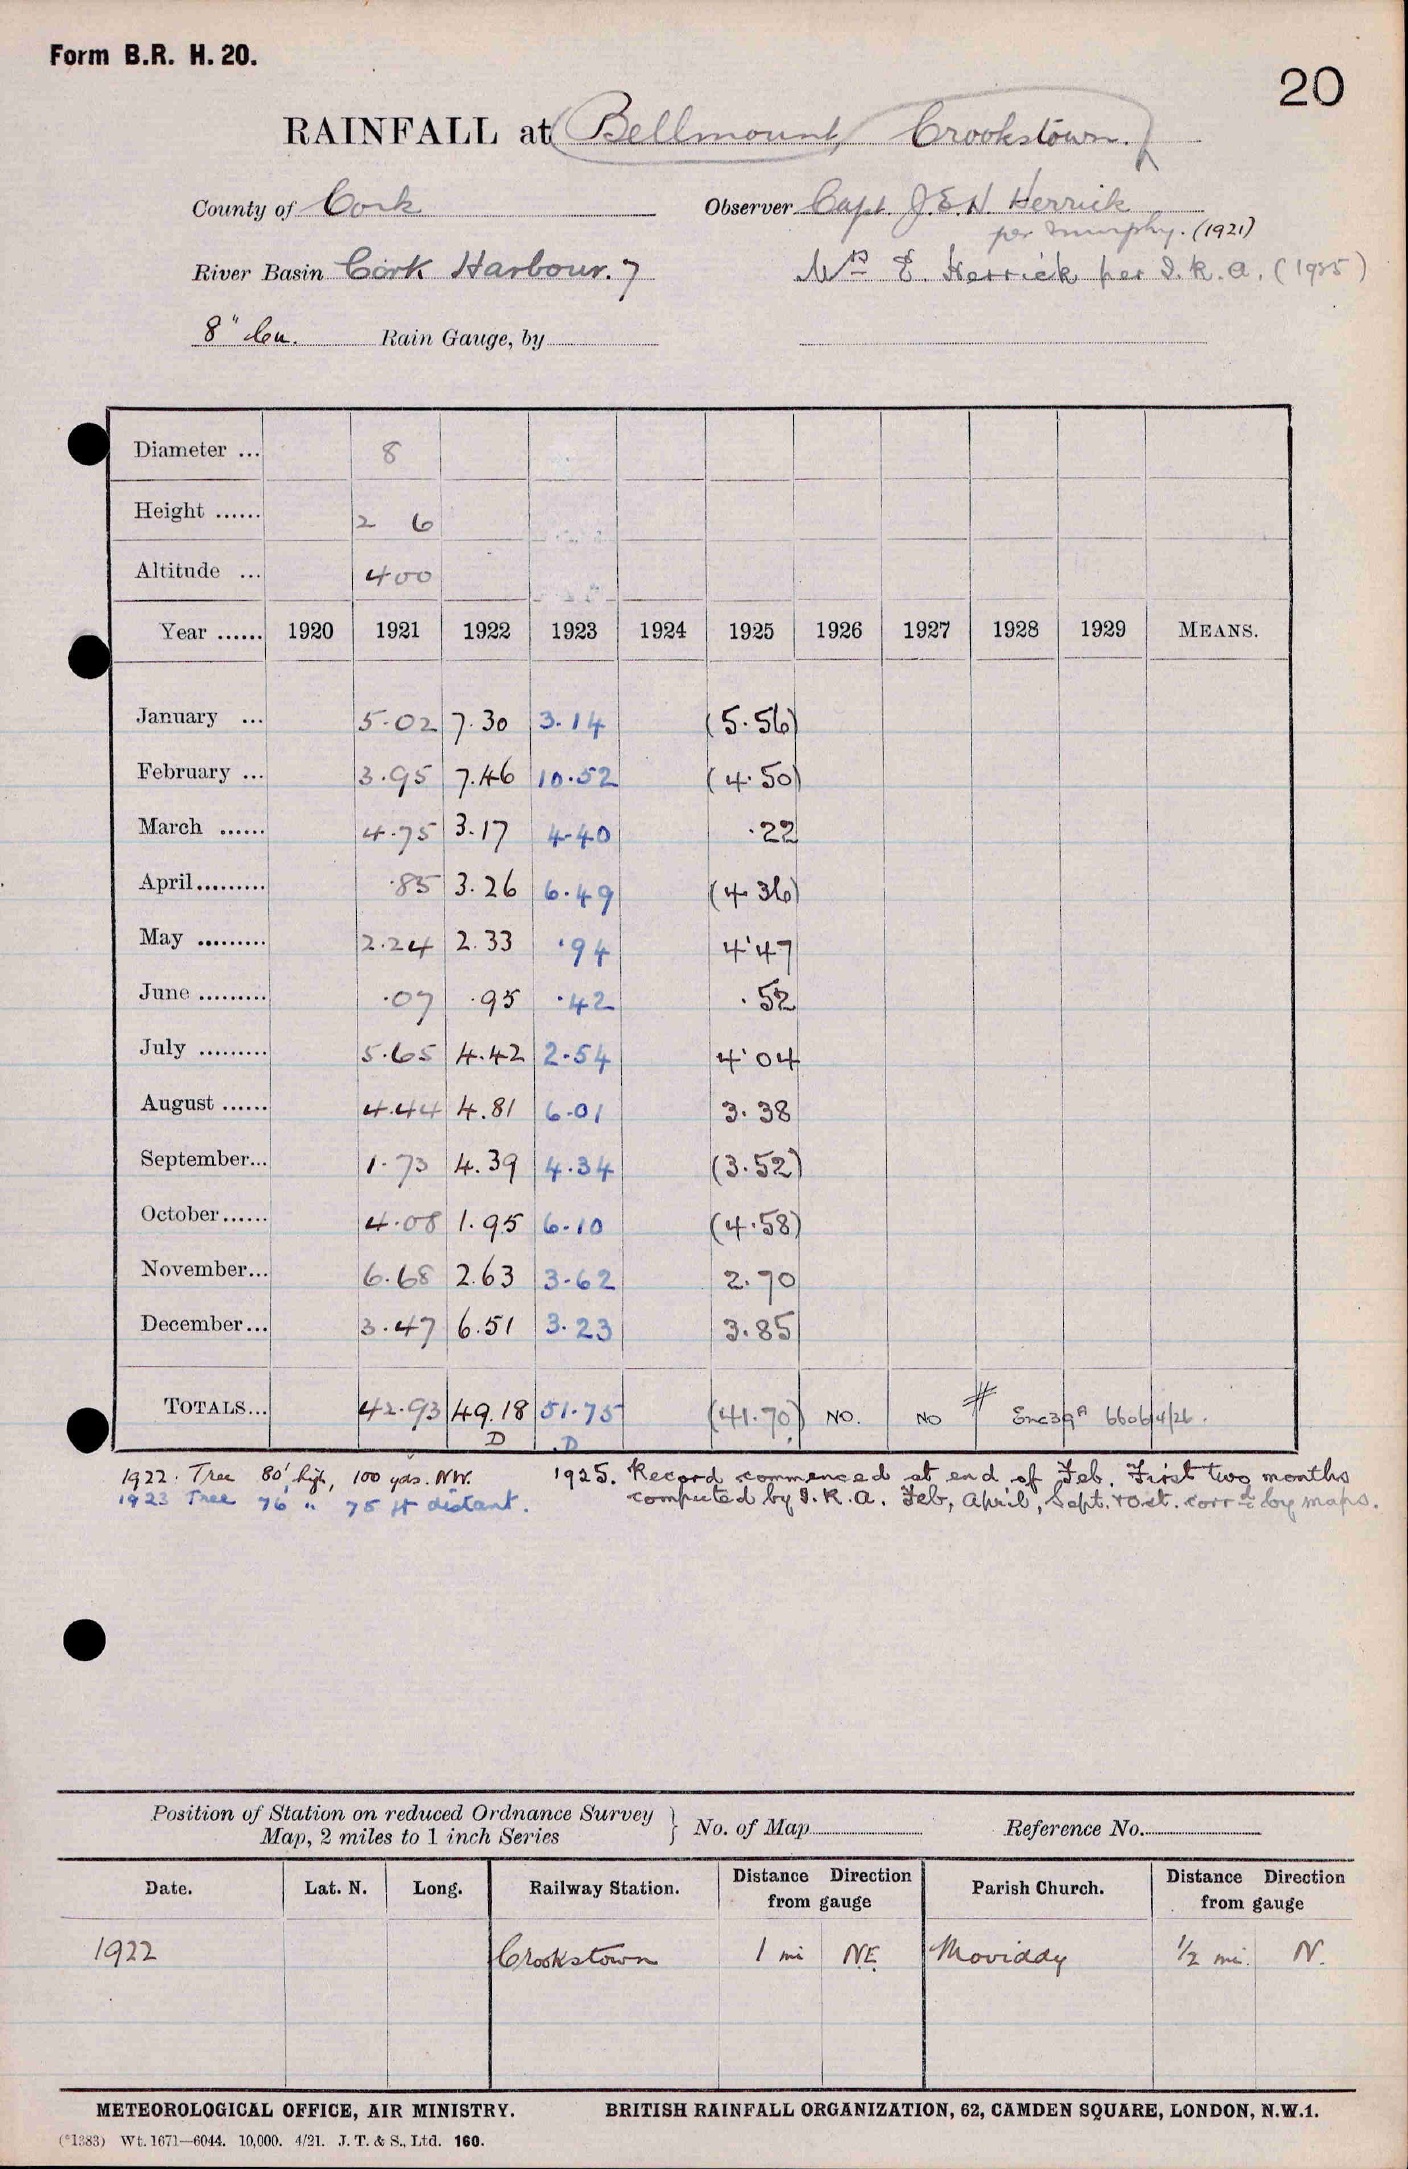 Form B.R. H. 20.
20
RAINFALL at Bellmount, Crookstown.
County of Cork
Observer Capt. J.E.N. Herrick
per Murphy. (1921)
River Basin Cork Harbour. 7
Mrs E. Herrick per I.R.A. (1925)
8" Cu. Rain Gauge, by
Diameter ... 8
Height ...... 2 6
Altitude ... 400
Year ...... 1920 1921 1922 1923 1924 1925 1926 1927 1928 1929 MEANS.
January ... 5.02 7.30 3.14 (5.56)
February ... 3.95 7.46 10.52 (4.50)
March ...... 4.75 3.17 4.40 .22
April......... .85 3.26 6.49 (4.36)
May ......... 2.24 2.33 .94 4.47
June ......... .07 .95 .42 .52
July ......... 5.65 4.42 2.54 4.04
August ...... 4.44 4.81 6.01 3.38
September... 1.73 4.39 4.34 (3.52)
October...... 4.08 1.95 6.10 (4.58)
November... 6.68 2.63 3.62 2.70
December... 3.47 6.51 3.23 3.85
TOTALS... 42.93 49.18 51.75 (41.70) NO. NO # Enc39A 6606/4/26.
D D
1922. Tree 80' high, 100 yds. NW.
1923 Tree 76 " 75 ft distant.
1925. Record commenced at end of Feb. First two months
computed by I.R.A. Feb, April, Sept. + Oct. corrd by maps.
Position of Station on reduced Ordnance Survey
Map, 2 miles to 1 inch Series } No. of Map Reference No.
Date. Lat. N. Long. Railway Station. Distance Direction from gauge Parish Church. Distance Direction from gauge
1922 Crookstown 1 mi NE. Moviddy 1/2 mi. N.
METEOROLOGICAL OFFICE, AIR MINISTRY. BRITISH RAINFALL ORGANIZATION, 62, CAMDEN SQUARE, LONDON, N.W.1.
(*1383) Wt. 1671—6044. 10,000. 4/21. J. T. & S., Ltd. 160.